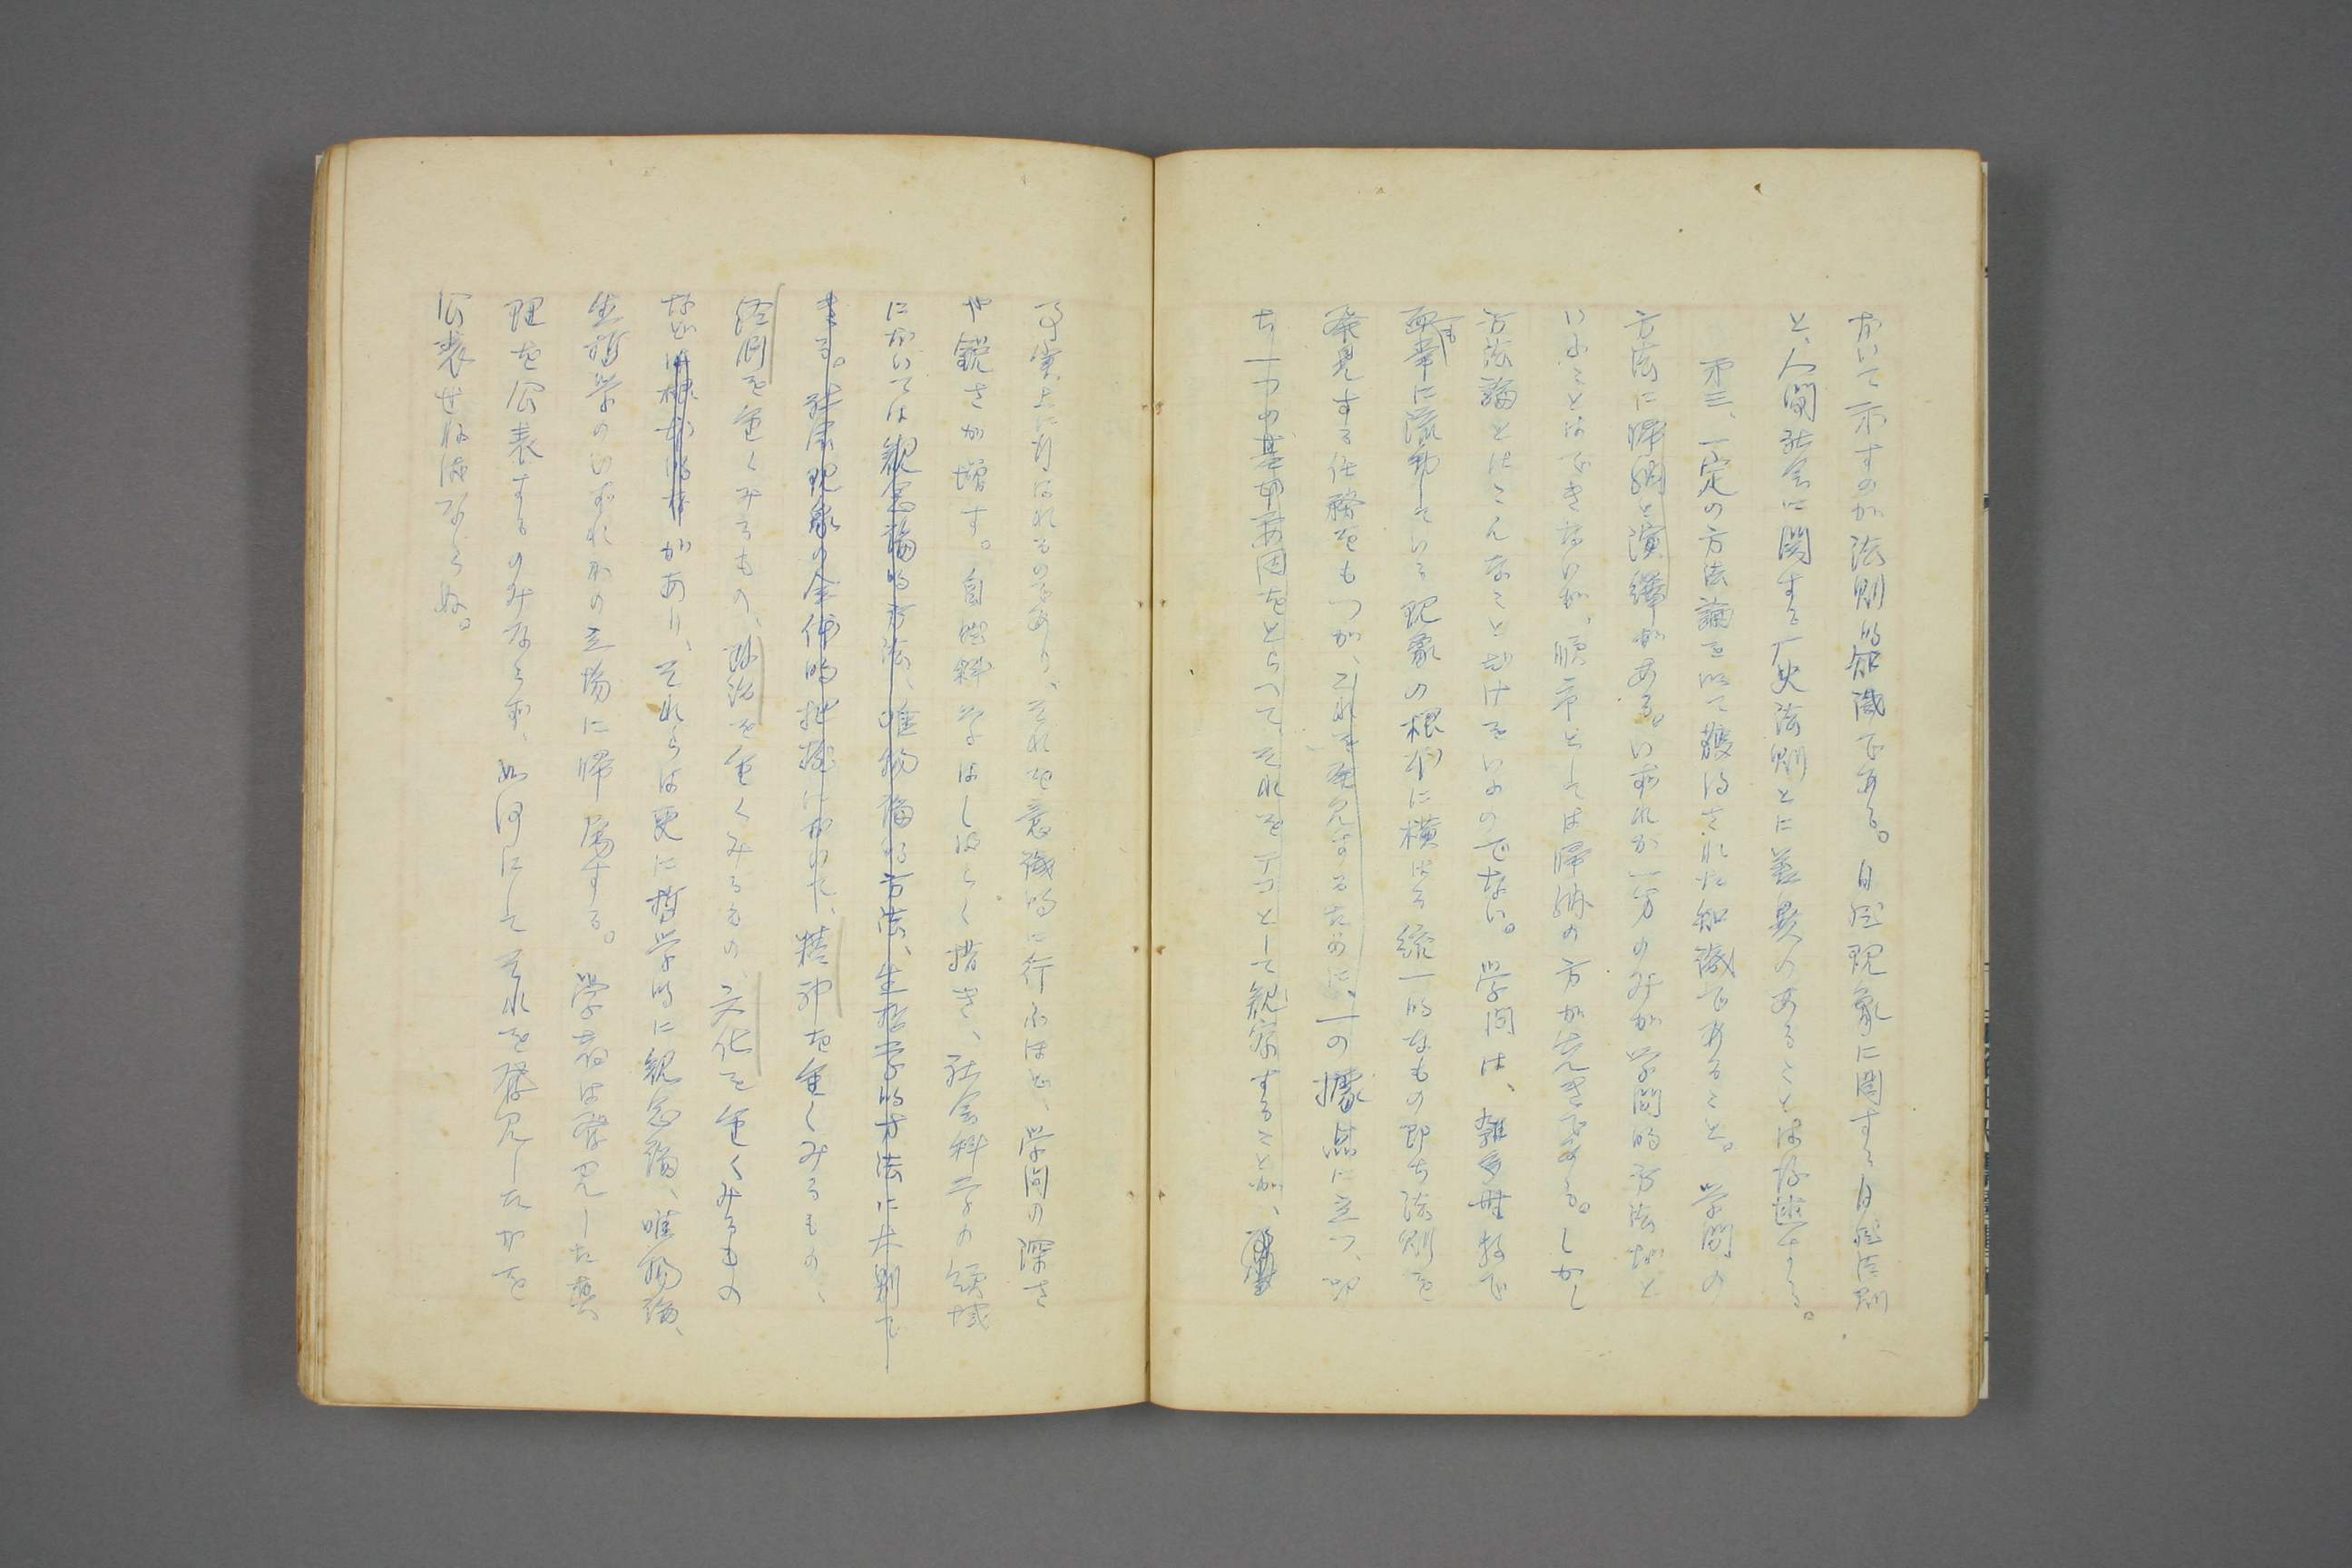 おいて示すのが法則的知識である。自然現象に関する自然法則
と、人間社会に関する歴史法則とに差異のあることは後述する。
第三、一定の方法論を以て獲得された知識であること。学問の
方法に帰納と演繹がある。いずれか一方のみが学問的方法だと
いふことはできないが、順序としては帰納の方が先きである。しかし
方法論とはこんなことだけをいふのでない。学問は、雑多無数で
而も常に流動している現象の根本に横はる統一的なもの即ち法則を
発見する任務をもつが、これを発見するために、一の據点に立つ、即
ち一つの基本要因をとらへて、それをテコとして観察することが、
事実上行はれるのであり、それを意識的に行ふほど、学問の深さ
や鋭さが増す。自然科学はしばらく措き、社会科学の領域
においては観念論的方法、唯物論的方法、生哲学的方法に大別で
きる。社会現象の全体的把握において、精神を重くみるもの、
経済を重くみるもの、政治を重くみるもの、文化を重くみるもの
などがあり、それらは更に哲学的に観念論、唯物論、
生哲学のいずれかの立場に帰属する。学者は発見した真
理を公表するのみならず、如何にしてそれを発見したかを
公表せねばならぬ。